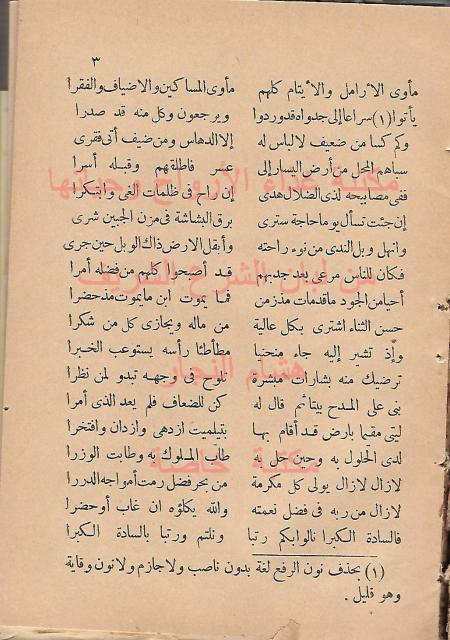 ٣
مأوى الأرامل والأيتام كلهم مأوى المساكين والاضياف والفقرا
يأتوا (١) سراعا إلى جدواه قد وردوا ويرجعون وكل منه قد صدرا
وكم كسا من ضعيف لا لباس له إلا الدهاس ومن ضيف أتى فقرى
سباهم المحل من أرض اليسار إلى عسر فاطلقهم وقبله أسرا
ففى مصابيحه لذى الضلال هدى إن راح فى ظلمات الغى وابتكرا
إن جئت تسأل يوما حاجة سترى برق البشاشة فى مزن الجبين شرى
وانهل وبل الندى من نوء راحته وأبقل الارض ذاك الوبل حين جرى
فكان للناس مرعى بعد جدبهم قد أصبحوا كلهم من فضله أمرا
أحيا من الجود ما قدمات مذ زمن فما يموت ابن مايموت مذ حضرا
حسن الثناء اشترى بكل عالية من ماله ويجازى كل من شكرا
وإذ تشير إليه جاء منحنيا مطأطئا رأسه يستوعب الخبرا
ترضيك منه بشارات مبشرة تلوح فى وجهه تبدو لمن نظرا
بنى على المدح بيتا ثم قال له كن للضعاف فلم يعد الذى أمرا
ليتى مقيما بارض قد أقام بها بتيلميت ازدهى وازدان وافتخرا
لدى الحلول به وحين حل به طاب الملوك به وطابت الوزرا
لازال لازال يولى كل مكرمة من بحر فضل رمت أمواجه الدررا
لازال من ربه فى فضل نعمته والله يكلؤه ان غاب أو حضرا
فالسادة الكبرا نالوا بكم رتبا ونلتم ورتبا بالسادة الكبرا
(١) بحذف نون الرفع لغة بدون ناصب ولا جازم ولا نون وقاية
وهو قليل .
مكتبة غذاء الأرواح وحياتها
من لبان الشرع الشريف
هشام النجار
مكتبة خاصة